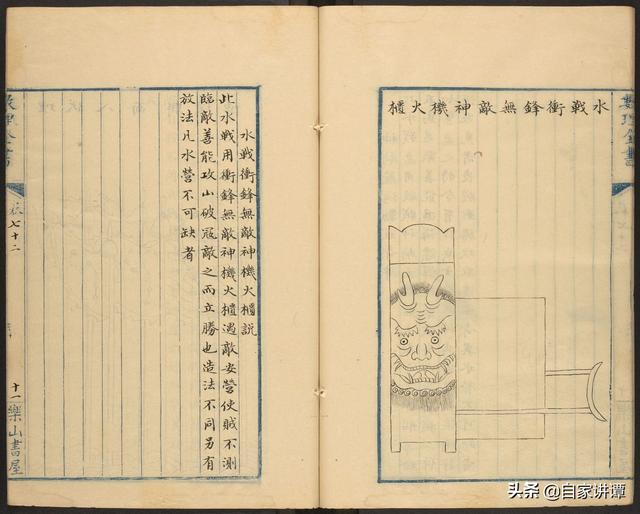 水戰衝鋒無敵神機火櫃
水戰衝鋒無敵神機火櫃說
此水戰用衝鋒無敵神機火櫃遇敵安營使賊不測
臨敵善能攻山破冦敵之而立勝也造法不同另有
放法凡水營不可缺者
卷七十二
十一
樂山書屋
头条 @自家讲谭